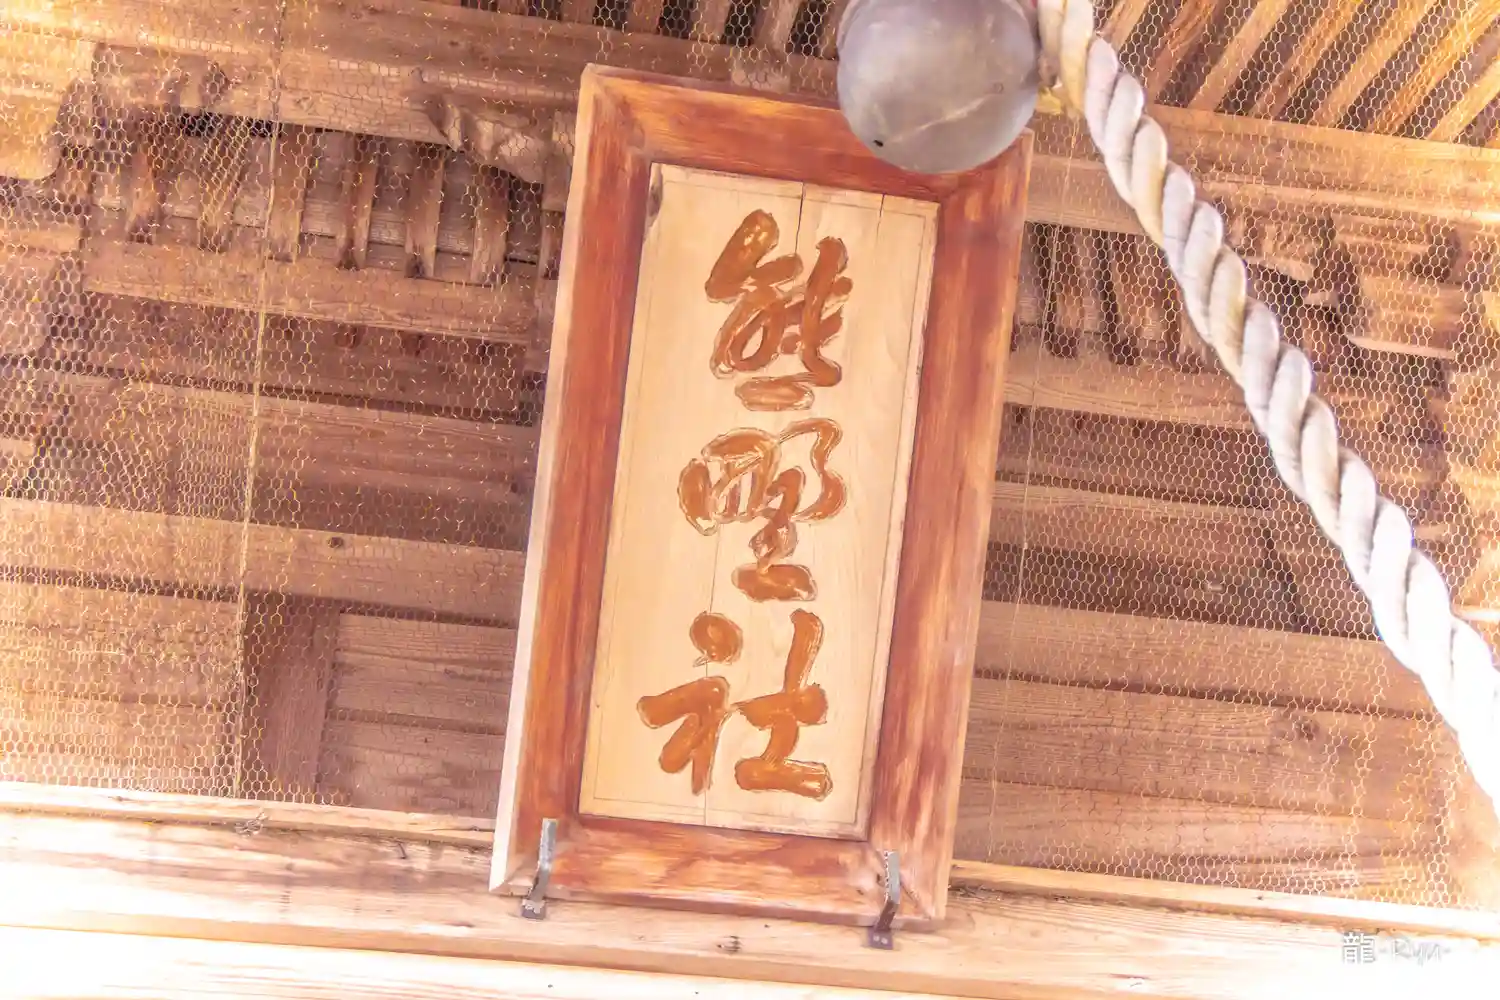 熊野社
龍-Ryu-